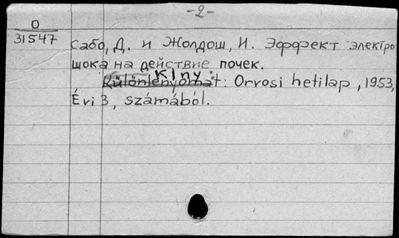 -2-
O
31547
Сабо, Д. и Жолдош, И. Эффект электро
шока на действие почек.
Klny.
Különlenyomat: Orvosi hetilap, 1953,
Évi 3, számából.